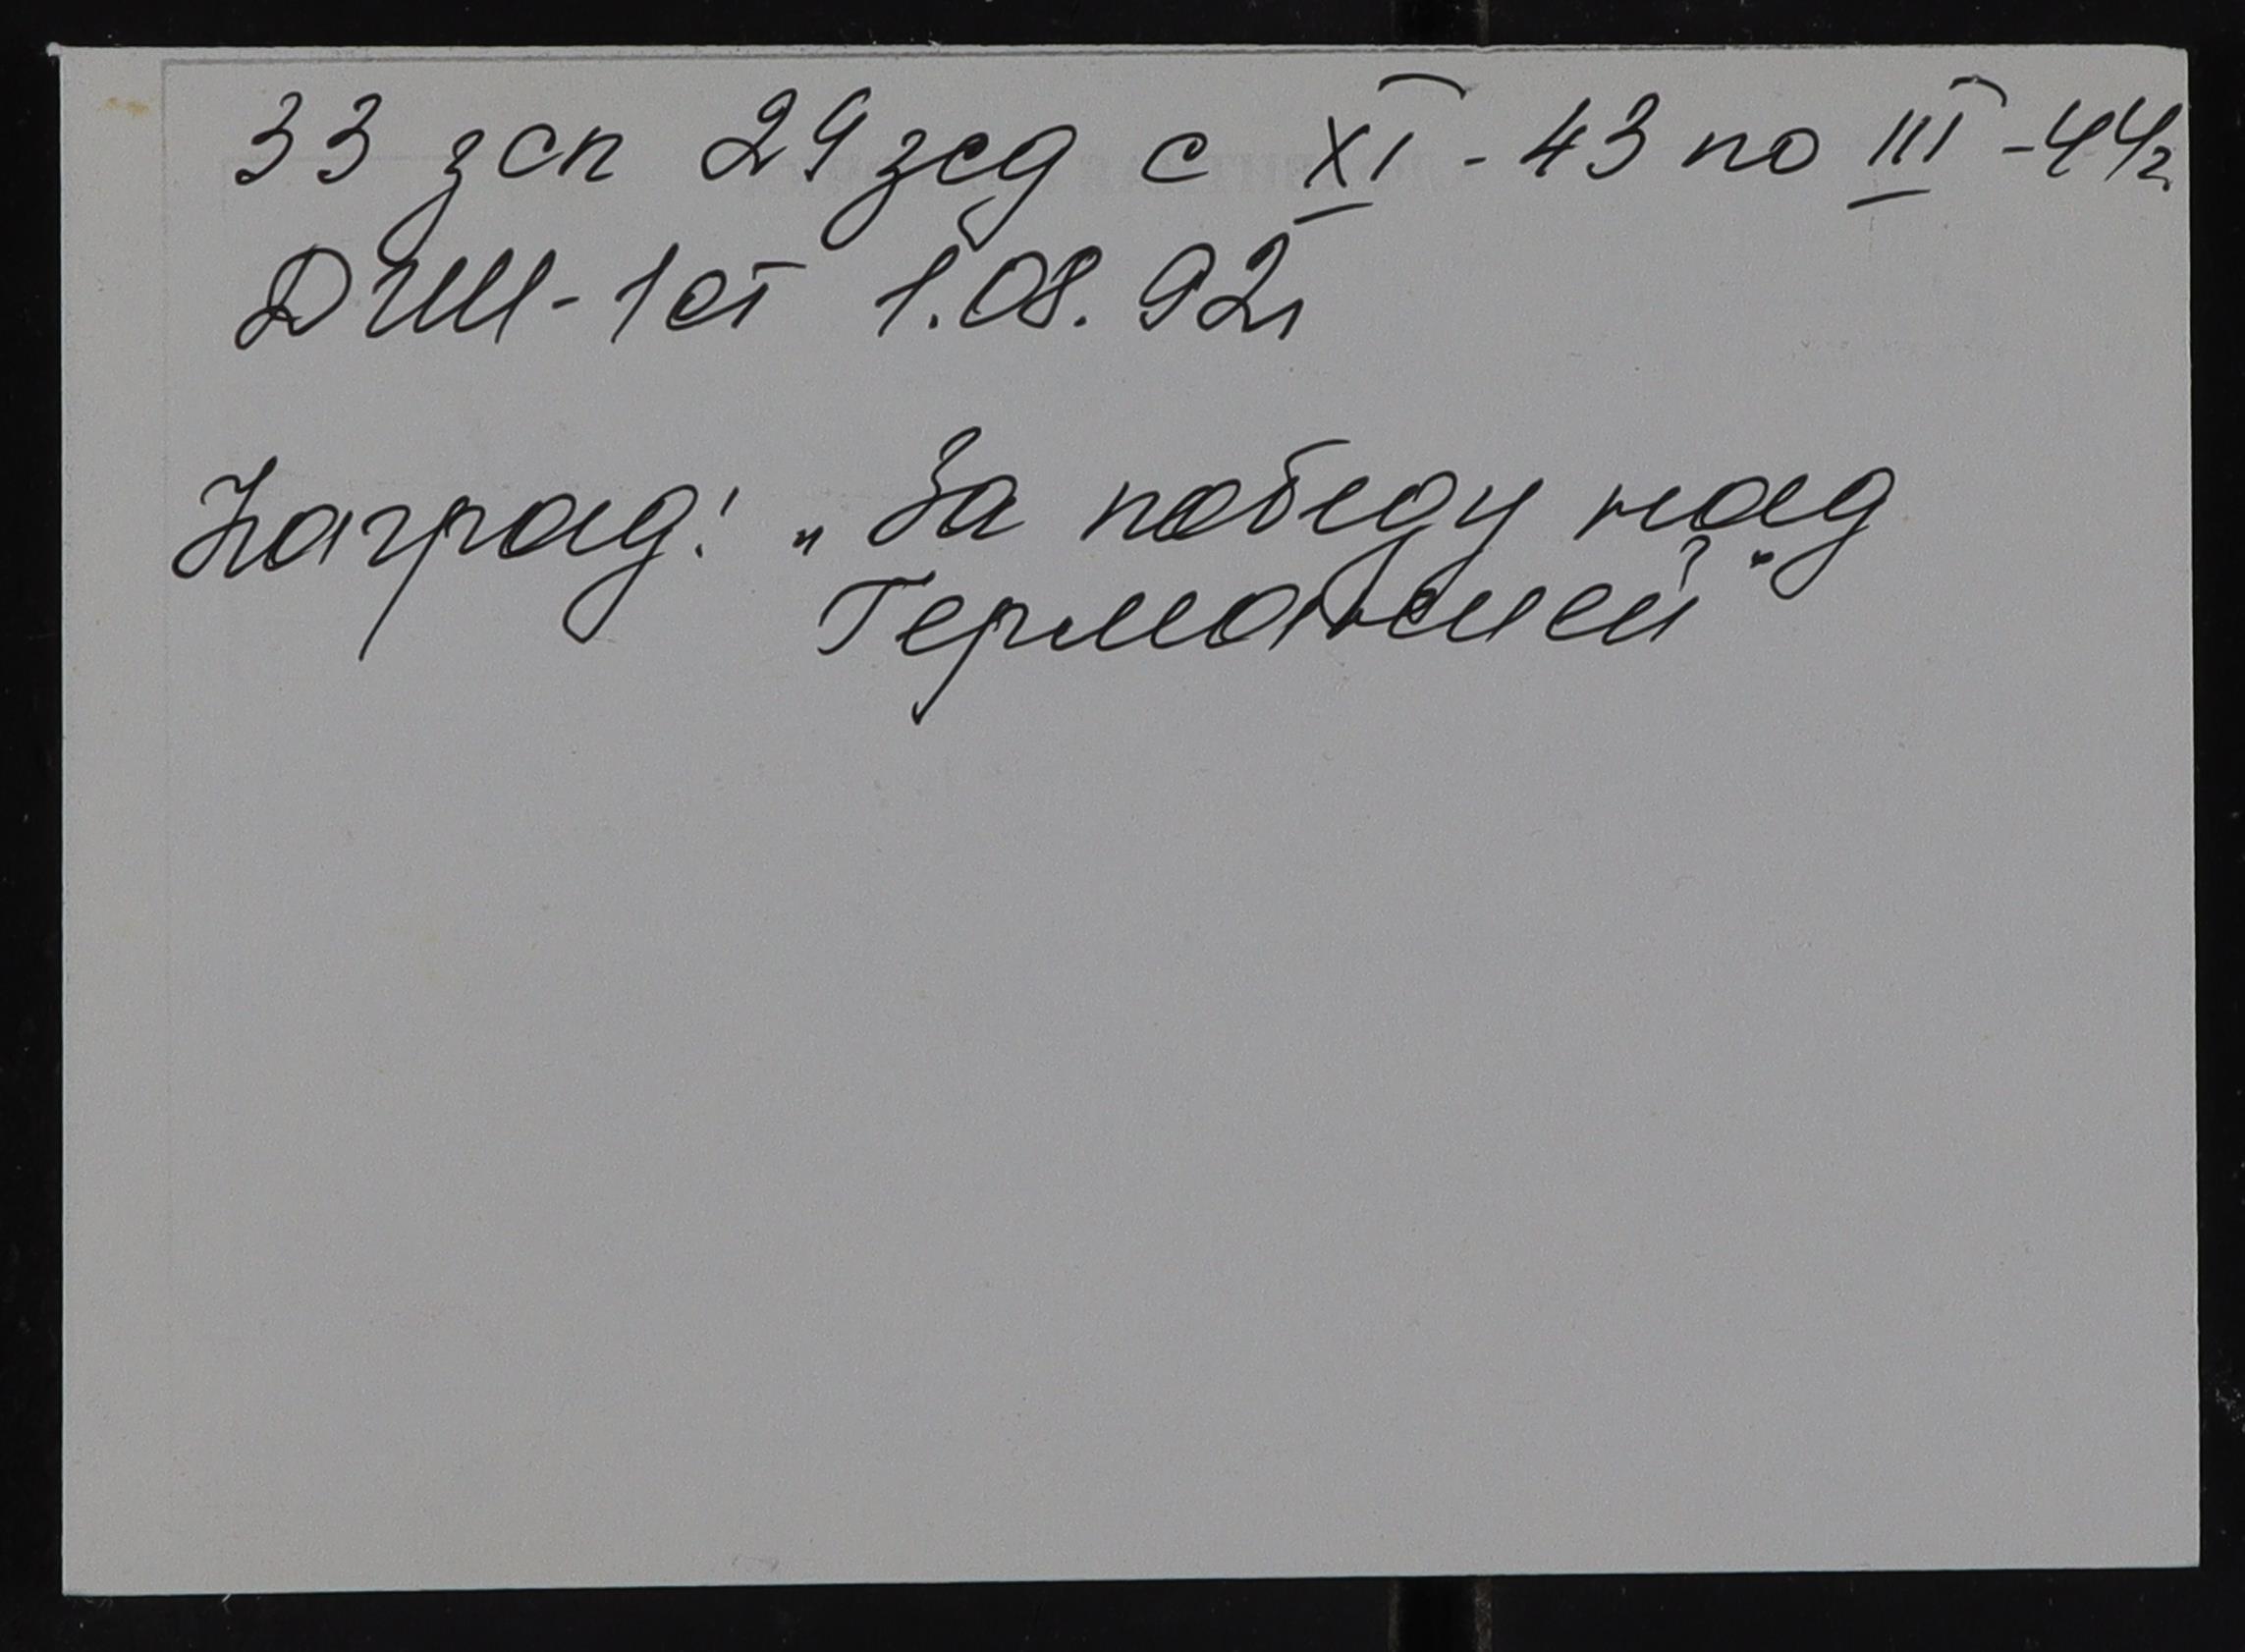 33 зсп 29 зсд с XI - 43 по III - 44г
ДШ - 1 от 1.08.92г
Наград: „За победу над
Германией"